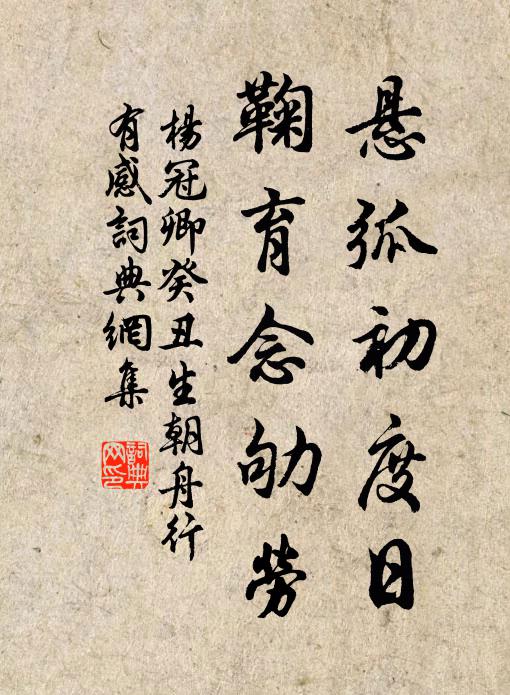 悬弧初度日
鞠育念劬勞
楊冠卿癸丑生朝舟行
有感詞典網集
詞典
网印